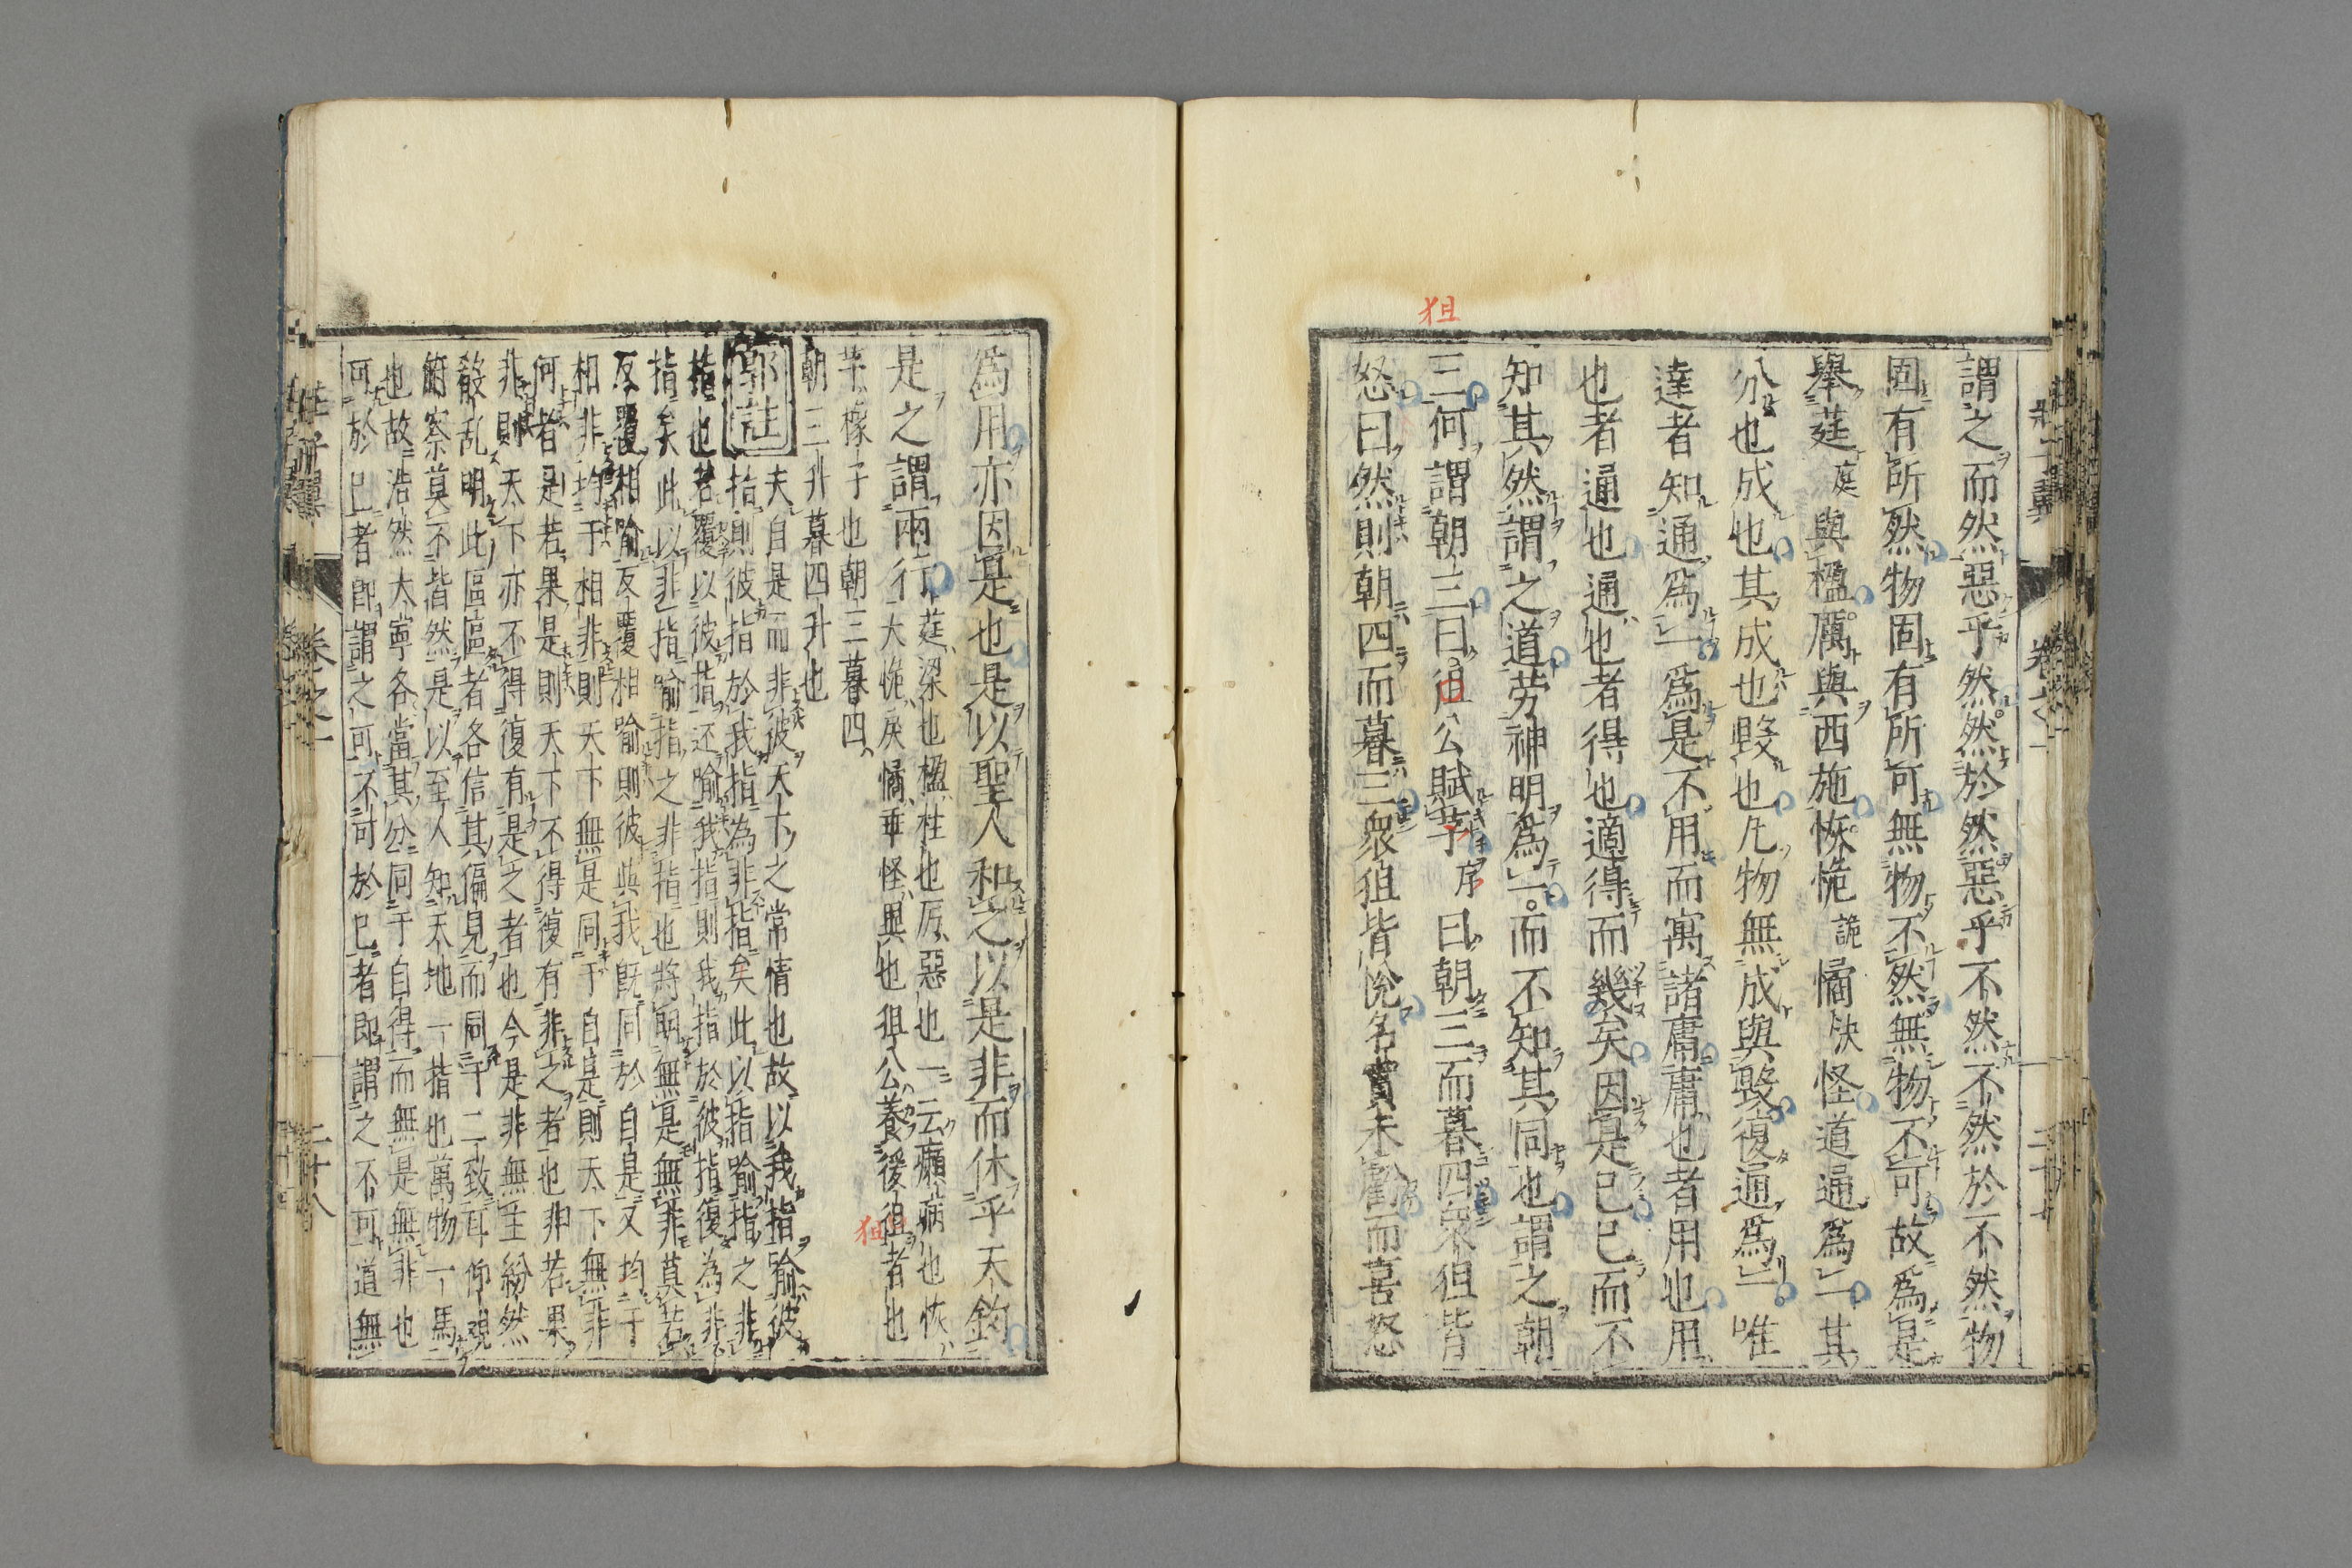 狙
謂之而然惡乎然然於然惡乎不然不然於不然物
固有所然物固有所可無物不然無物不可故爲是
舉莛庭與楹厲與西施恢恑詭憰决怪道通爲一其
分也成也其成也毀也凡物無成與毀復通爲一唯
達者知通爲一爲是不用而寓諸庸庸也者用也用
也者通也通也者得也適得而幾矣因是已已而不
知其然謂之道劳神明爲一而不知其同也謂之朝
三何謂朝三曰狙公賦芧序曰朝三而暮四衆狙皆
怒曰然則朝四而暮三衆狙皆悅名實未虧而喜怒
爲用亦因是也是以聖人和之以是非而休乎天鈞
是之謂兩行
莛梁也楹柱也厉惡也一云癩病也恢
大恑戾憰乖怪異也狙公養猨狙者也
狙
芧橡子也朝三暮四
朝三升暮四升也
郭註
夫自是而非彼天下之常情也故以我指喻彼
指則彼指於我指為非指矣此以指喻指之非
指也若覆以彼指还喻我指則我指於彼指復為非
指矣此以非指喻指之非指也將明無是無非莫若
反覆相喻反覆相喻則彼與我既同於自是又均于
相非均于相非則天下無是同于自是則天下無非
何者是若果是則天下不得復有非之者也非若果
非則天下亦不得復有是之者也今是非無主紛然
殽乱明此區區者各信其偏見而同于二致耳仰觀
俯察莫不皆然是以至人知天地一指也萬物一馬
也故浩然大寧各當其分同于自得而無是無非也
可於已者即謂之可不可於已者即謂之不可道無
莊子翼 卷之一 二十八